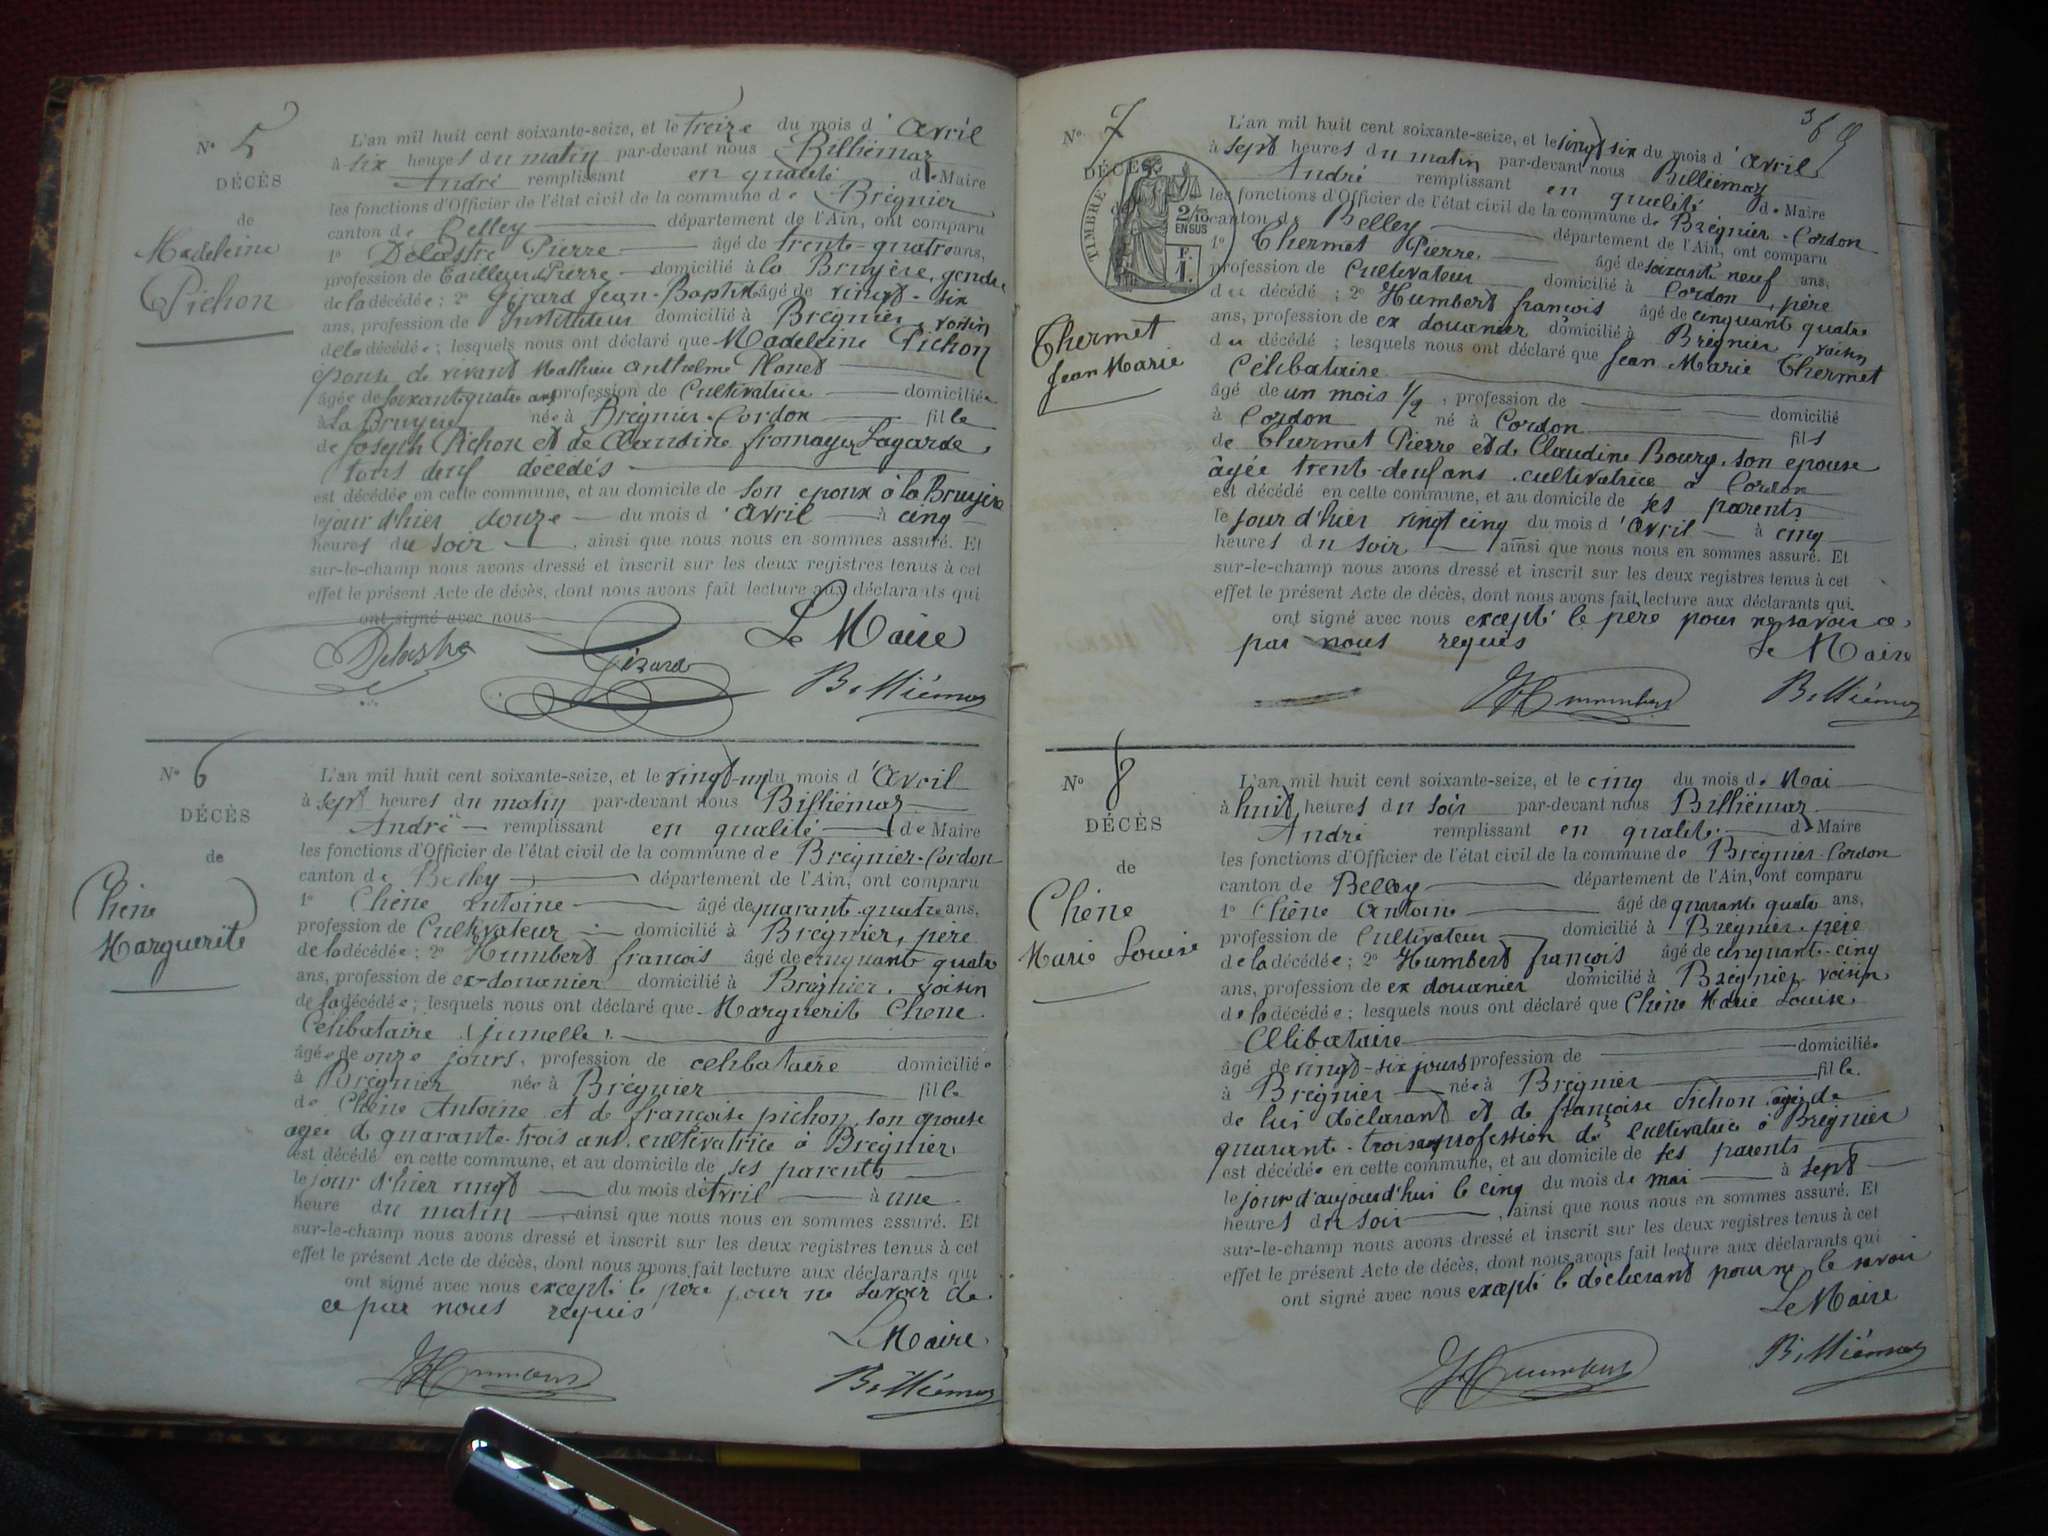 N° 5
DÉCÈS
de
Madeleine
Pichon
L'an mil huit cent soixante-seize, et le treize du mois d'Avril
à six heures du matin par-devant nous Billiémaz
André remplissant en qualité de Maire
les fonctions d'Officier de l'état civil de la commune de Brégnier
canton de Belley département de l'Ain, ont comparu
1° Delastre Pierre âgé de trente-quatre ans,
profession de tailleur de Pierre domicilié à la Bruyère, gendre
de la décédée ; 2° Girard Jean-Baptiste âgé de vingt-six
ans, profession de Instituteur domicilié à Brégnier, voisin
de la décédée ; lesquels nous ont déclaré que Madeleine Pichon
épouse de vivant Mathieu Anthelme
âgée de soixante quatre ans profession de cultivatrice domiciliée
à La Bruyère née à Brégnier-Cordon fille
de Joseph Pichon et de Claudine fromager Lagarde,
tous deux décédés
est décédée en cette commune, et au domicile de son époux à la Bruyère
le jour d'hier douze du mois d'Avril à cinq
heures du soir, ainsi que nous nous en sommes assuré. Et
sur-le-champ nous avons dressé et inscrit sur les deux registres tenus à cet
effet le présent Acte de décès, dont nous avons fait lecture aux déclarants qui
ont signé avec nous
Le Maire
Delastre Girard Billiémaz
N° 6
DÉCÈS
de
Chêne
Marguerite
L'an mil huit cent soixante-seize, et le vingt-un du mois d'Avril
à sept heures du matin par-devant nous Billiémaz
André remplissant en qualité de Maire
les fonctions d'Officier de l'état civil de la commune de Brégnier-Cordon
canton de Belley département de l'Ain, ont comparu
1° Chêne Antoine âgé de quarant-quatre ans,
profession de Cultivateur domicilié à Brégnier, père
de la décédée ; 2° Humbert françois âgé de cinquant quatre
ans, profession de ex-douanier domicilié à Brégnier, voisin
de la décédée ; lesquels nous ont déclaré que Marguerit Chene
Célibataire (jumelle)
âgée de onze jours, profession de celibataire domiciliée
à Brégnier née à Brégnier fille
de Chêne Antoine et de françoise pichon, son epouse
agée de quarante-trois ans, cultivatrice à Brégnier,
est décédé en cette commune, et au domicile de ses parents
le jour d'hier vingt du mois d'Avril à une
heure du matin, ainsi que nous nous en sommes assuré. Et
sur-le-champ nous avons dressé et inscrit sur les deux registres tenus à cet
effet le présent Acte de décès, dont nous avons fait lecture aux déclarants qui
ont signé avec nous excepté le père pour ne savoir de
ce par nous requis
Le Maire
Humbert Billiémaz
369
N° 7
DÉCÈS
TIMBRE
2/10
EN SUS
F.
1.
Thermet
Jean Marie
L'an mil huit cent soixante-seize, et le vingt six du mois d'Avril
à sept heures du matin par-devant nous Billiémaz
André remplissant en qualité de Maire
les fonctions d'Officier de l'état civil de la commune de Brégnier-Cordon
canton de Belley département de l'Ain, ont comparu
1° Thermet Pierre âgé de soixante neuf ans,
profession de Cultivateur domicilié à Cordon, père
du décédé ; 2° Humbert françois âgé de cinquant quatre
ans, profession de ex douanier domicilié à Brégnier voisin
du décédé ; lesquels nous ont déclaré que Jean Marie Thermet
Célibataire
âgé de un mois 1/2, profession de domicilié
à Cordon né à Cordon fils
de Thermet Pierre et de Claudine Boury, son epouse
âgée trent-deux ans, cultivatrice à Cordon
est décédé en cette commune, et au domicile de ses parents
le jour d'hier vingt cinq du mois d'Avril à cinq
heures du soir, ainsi que nous nous en sommes assuré. Et
sur-le-champ nous avons dressé et inscrit sur les deux registres tenus à cet
effet le présent Acte de décès, dont nous avons fait lecture aux déclarants qui
ont signé avec nous excepté le père pour ne savoir ce,
par nous requis Le Maire
Humbert Billiémaz
N° 8
DÉCÈS
de
Chêne
Marie Louise
L'an mil huit cent soixante-seize, et le cinq du mois de Mai
à huit heures du soir par-devant nous Billiémaz
André remplissant en qualité de Maire
les fonctions d'Officier de l'état civil de la commune de Brégnier-Cordon
canton de Belley département de l'Ain, ont comparu
1° Chêne Antoine âgé de quarante quatre ans,
profession de Cultivateur domicilié à Brégnier, père
de la décédée ; 2° Humbert françois âgé de cinquante-cinq
ans, profession de ex douanier domicilié à Brégnier, voisin
de la décédée ; lesquels nous ont déclaré que Chêne Marie Louise,
Célibataire
âgé de vingt-six jours profession de domiciliée
à Brégnier née à Brégnier fille
de lui déclarant et de françoise Pichon agée de
quarante-trois ans profession de cultivatrice à Brégnier
est décédée en cette commune, et au domicile de ses parents
le jour d'aujourd'hui le cinq du mois de mai à sept
heures du soir, ainsi que nous nous en sommes assuré. Et
sur-le-champ nous avons dressé et inscrit sur les deux registres tenus à cet
effet le présent Acte de décès, dont nous avons fait lecture aux déclarants qui
ont signé avec nous excepté le déclarant pour ne le savoir
Le Maire
Humbert Billiémaz